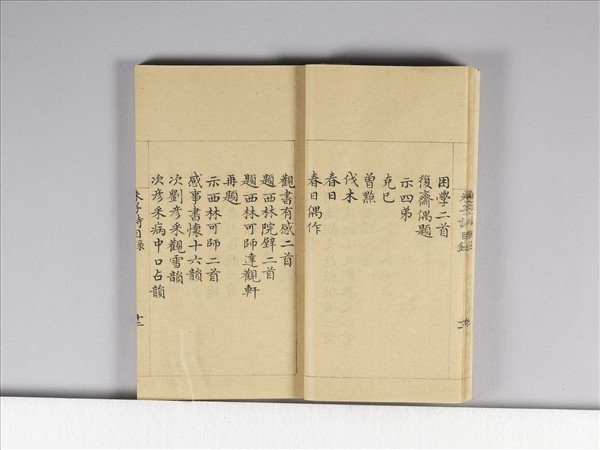 困學二首
復齋偶題
示四弟
克己
曾點
伐木
春日
春日偶作
觀書有感二首
題西林院壁二首
題西林可師達觀軒
再題
示西林可師二首
感事書懷十六韻
次劉彥采觀雪韻
次彥采病中口占韻
朱子詩目錄
十二